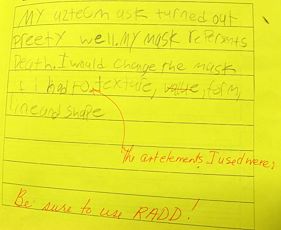 MY aztecm ask turned out
preety well. My mask repersents
Death. I would change the mask
if I had to. texture, value, form,
line and shape
The art elements I used were,
Be sure to use RADD!